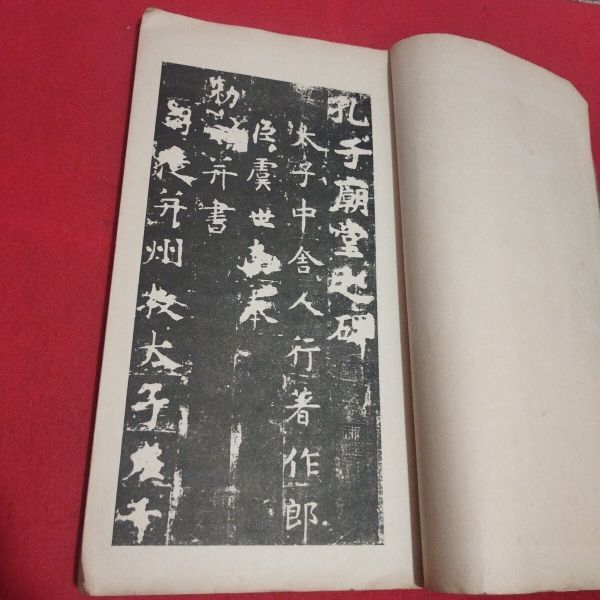 孔子廟堂之碑
太子中舍人行著作郎
臣虞世南奉
勅撰并書
司徒并州牧太子左千